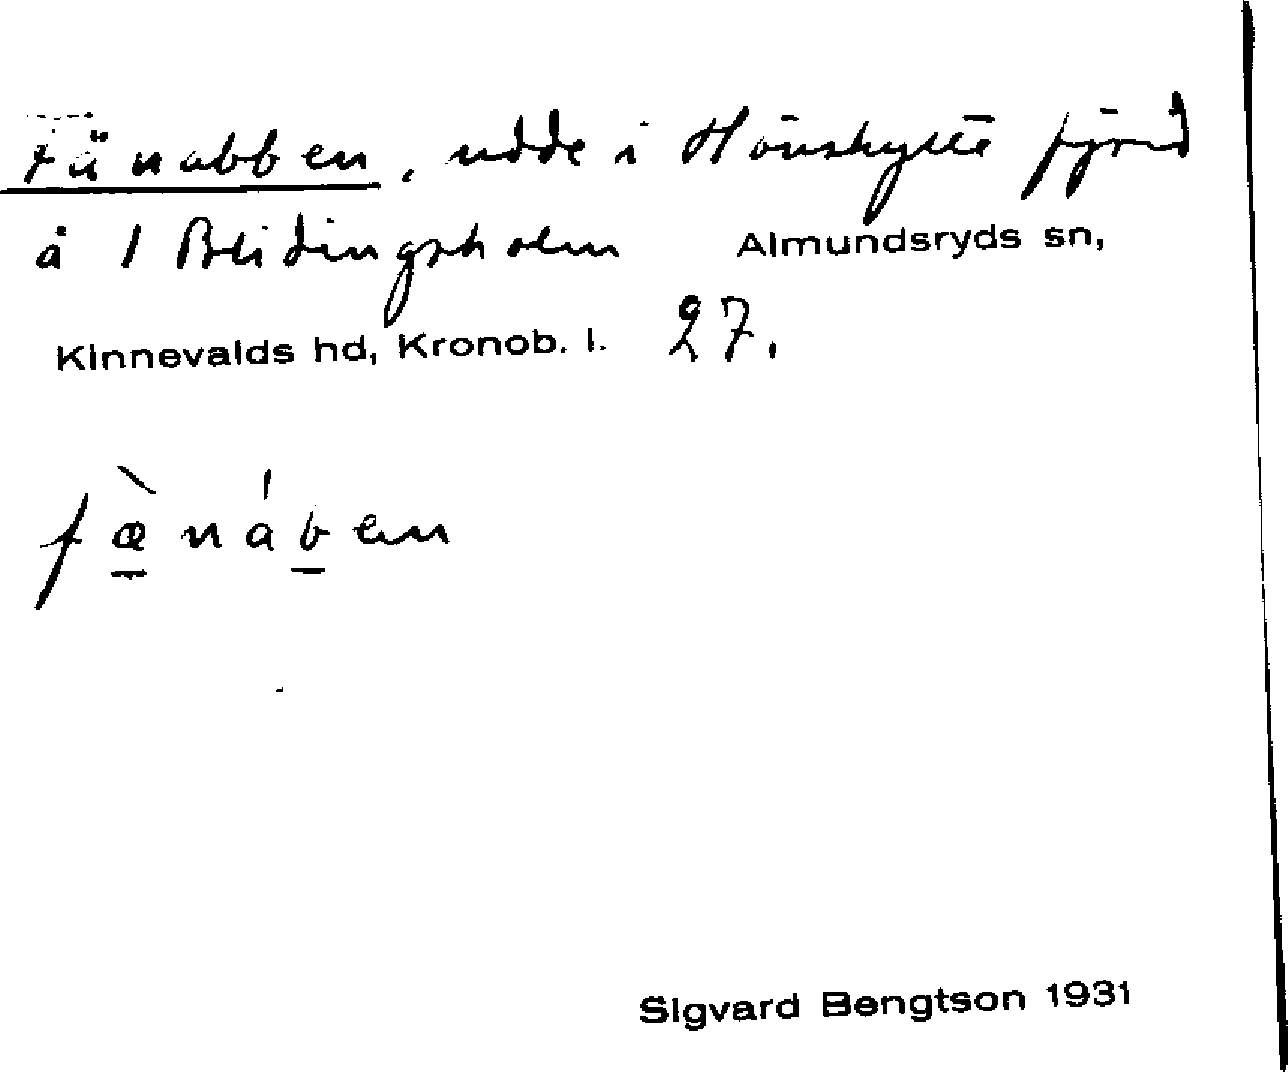 Fänabben, udde i Hönshylte fjord
å 1 Blidingsholm Almundsryds sn,
Kinnevalds hd, Kronob. l. 27.
fæ̀náben
Sigvard Bengtson 1931